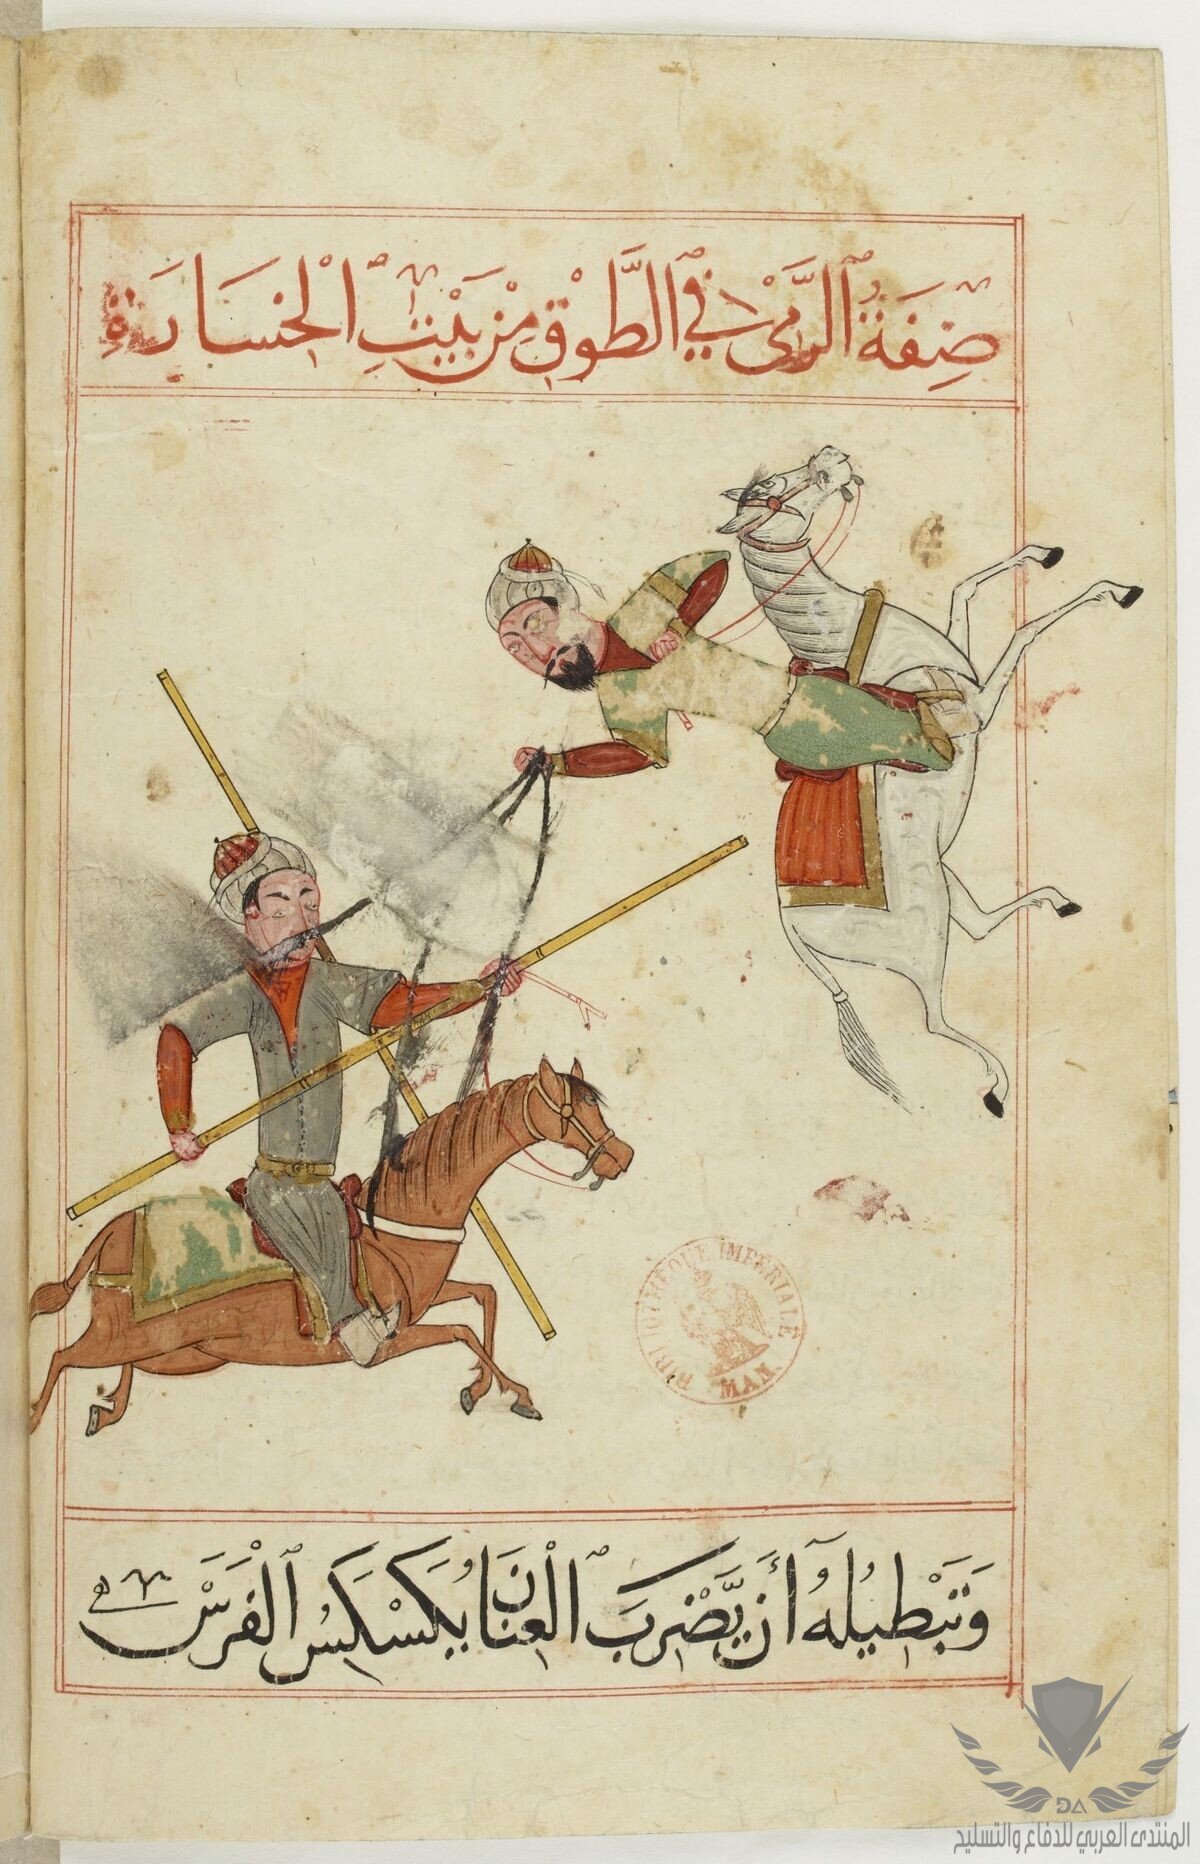 صِفَةُ الرَّمْيِ فِي الطَّوْقِ مِنْ بَيْتِ الخَسَارَةِ
BIBLIOTHEQUE IMPERIALE
MAN
وَتَبْطِيلُهُ أَنْ يَّضْرِبَ العِنَانَ بِكَسْكَسُ الفَرَسْ
DA
المنتدى العربي للدفاع والتسليح